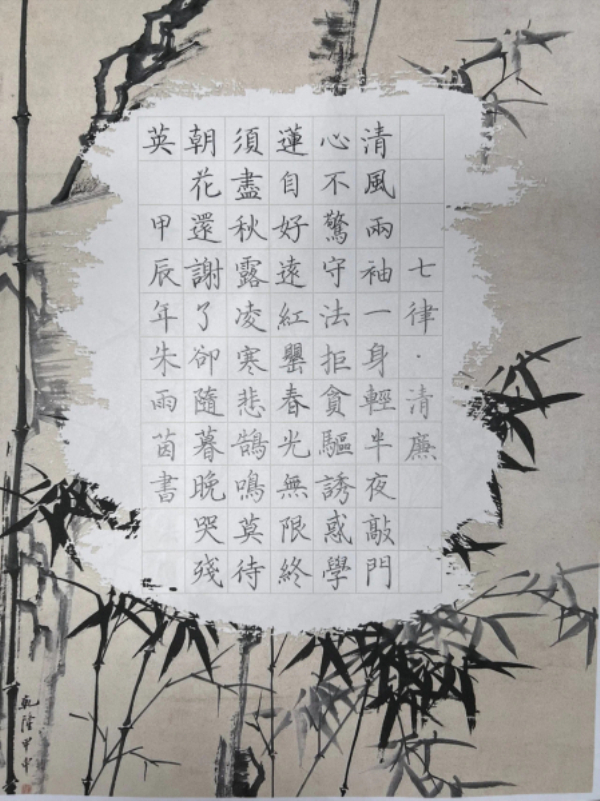 七律·清廉
清風兩袖一身輕半夜敲門
心不驚守法拒貪驅誘惑學
蓮自好遠紅罌春光無限終
須盡秋露凌寒悲鵠鳴莫待
朝花還謝了卻隨暮晚哭殘
英 甲辰年朱雨茵書
乾隆甲申